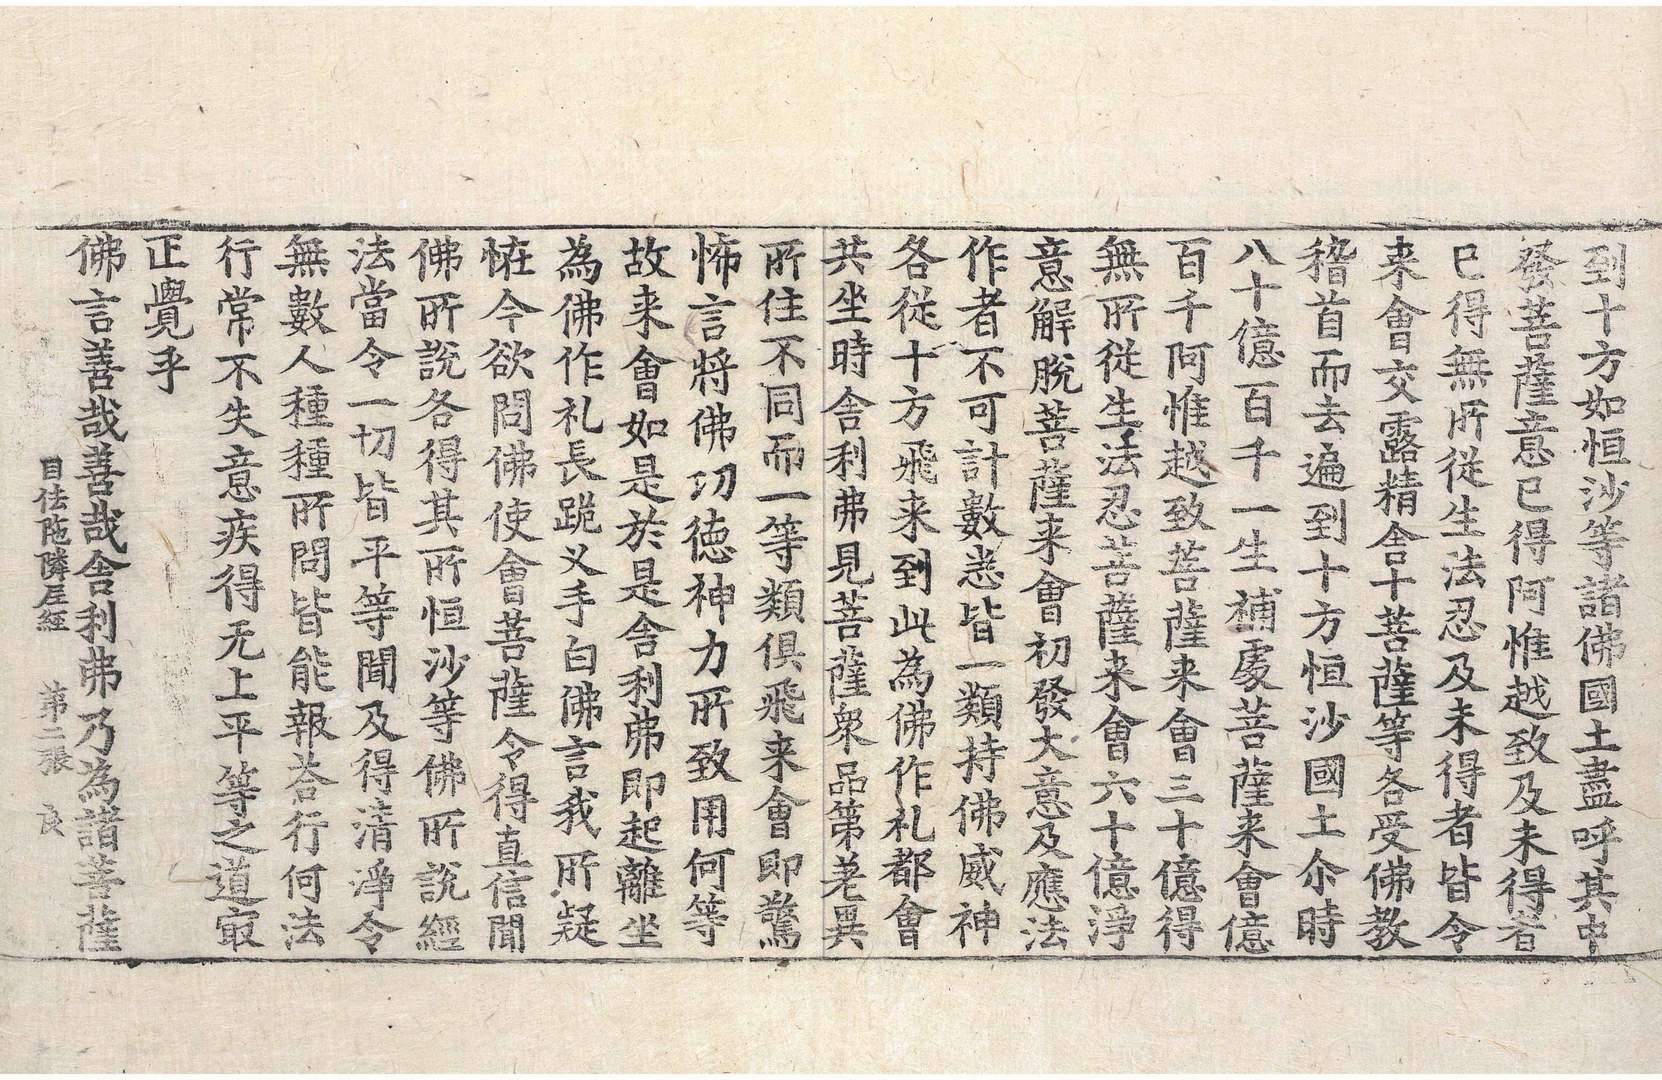 到十方如恒沙等諸佛國土盡呼其中
發菩薩意已得阿惟越致及未得者
已得無所從生法忍及未得者皆令
来會交露精舍十菩薩等各受佛教
稽首而去遍到十方恒沙國土尒時
八十億百千一生補處菩薩来會億
百千阿惟越致菩薩来會三十億得
無所從生法忍菩薩来會六十億淨
意解脫菩薩来會初發大意及應法
作者不可計數悉皆一類持佛威神
各從十方飛来到此為佛作礼都會
共坐時舍利弗見菩薩衆品第差異
所住不同而一等類俱飛来會即驚
怖言將佛功徳神力所致用何等
故来會如是於是舍利弗即起離坐
為佛作礼長跪叉手白佛言我所疑
恠今欲問佛使會菩薩令得直信聞
佛所說各得其所恒沙等佛所說經
法當令一切皆平等聞及得清淨令
無數人種種所問皆能報荅行何法
行常不失意疾得无上平等之道㝡
正覺乎
佛言善哉善哉舍利弗乃為諸菩薩
目佉陁隣尼經 第二張 良